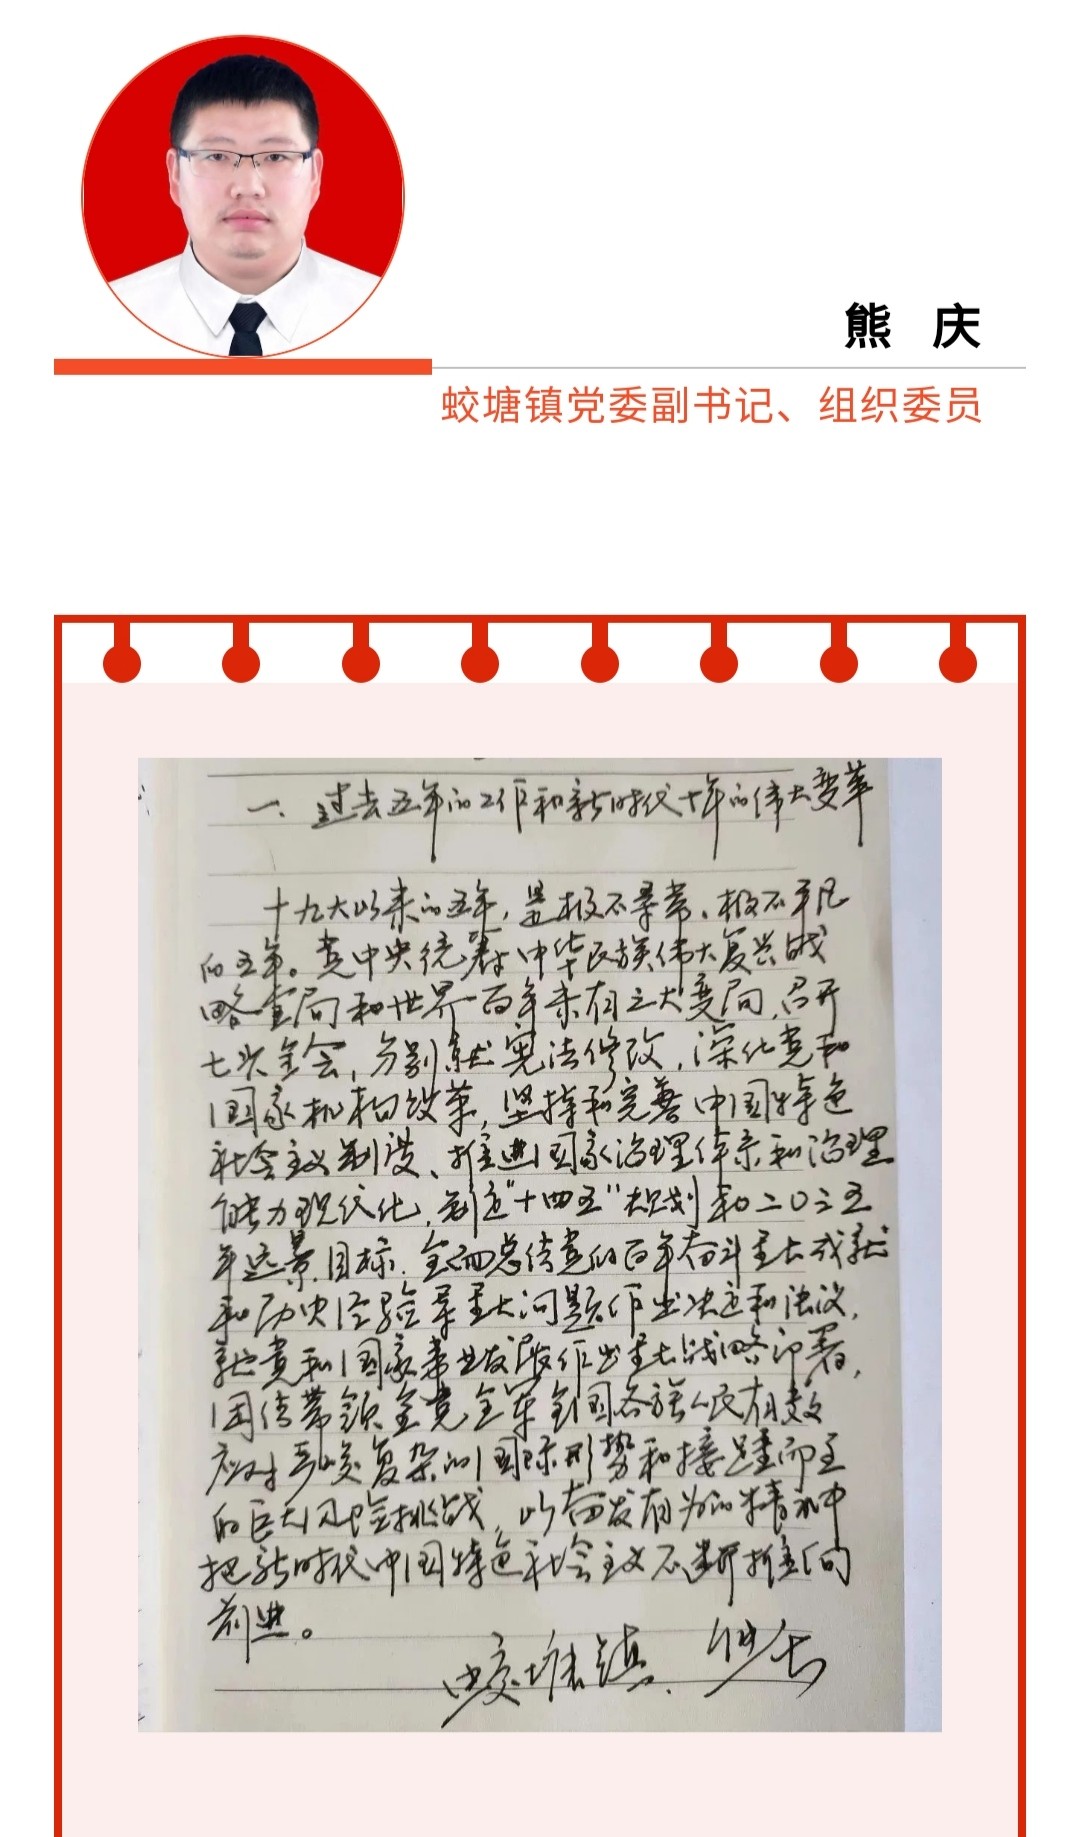 熊 庆
蛟塘镇党委副书记、组织委员
一、过去五年的工作和新时代十年的伟大变革
十九大以来的五年，是极不寻常、极不平凡
的五年。党中央统筹中华民族伟大复兴战
略全局和世界百年未有之大变局，召开
七次全会，分别就宪法修改，深化党和
国家机构改革，坚持和完善中国特色
社会主义制度、推进国家治理体系和治理
能力现代化，制定“十四五”规划和二〇三五
年远景目标，全面总结党的百年奋斗重大成就
和历史经验等重大问题作出决定和决议，
就党和国家事业发展作出重大战略部署，
团结带领全党全军全国各族人民有效
应对严峻复杂的国际形势和接踵而至
的巨大风险挑战，以奋发有为的精神
把新时代中国特色社会主义不断推向
前进。
蛟塘镇